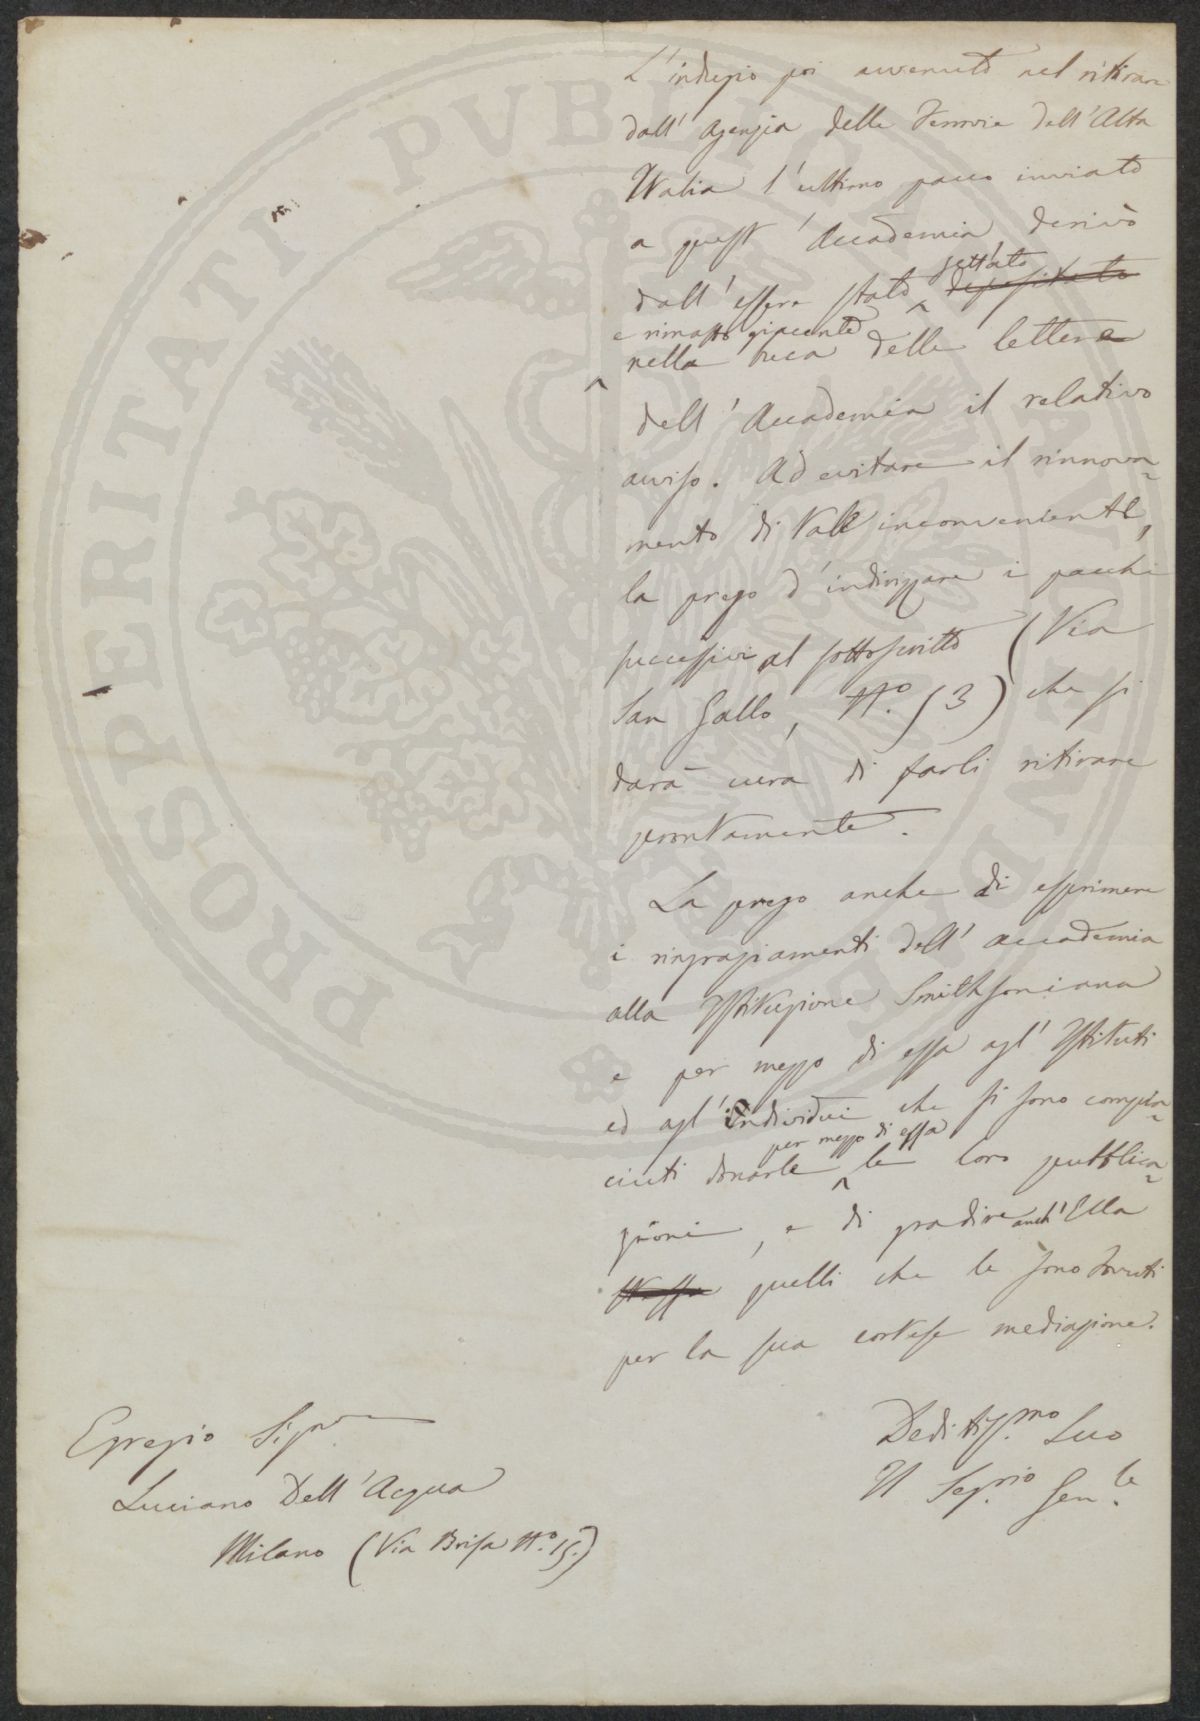 L'indugio poi avvenuto nel ritirare
dall'Agenzia delle Ferrovie dell'Alta
Italia l'ultimo pacco inviato
a quest'Accademia derivò
gettato
dall'essere stato depositato
e rimasto giacente
nella buca delle lettere
dell'Accademia il relativo
avviso. Ad evitare il rinnova=
mento di tale inconveniente,
la prego d'indirizzare i pacchi
successivi al sottoscritto (Via
San Gallo, N.o 53) che si
darà cura di farli ritirare
prontamente.
La prego anche di esprimere
i ringraziamenti dell'Accademia
alla Istituzione Smithsoniana
e per mezzo di essa agl'Istituti
ed agl'individui che si sono compia=
per mezzo di essa
ciuti donarle le loro pubblica=
zioni, e di gradire anch'Ella
stessa quelli che le sono dovuti
per la sua cortese mediazione.
Deditiss.mo Suo
Il Seg.rio Gen.le
Egregio Sig.re
Luciano Dell'Acqua
Milano (Via Brisa N.o 15.)
PROSPERITATI PVBLICAE AVGENDAE